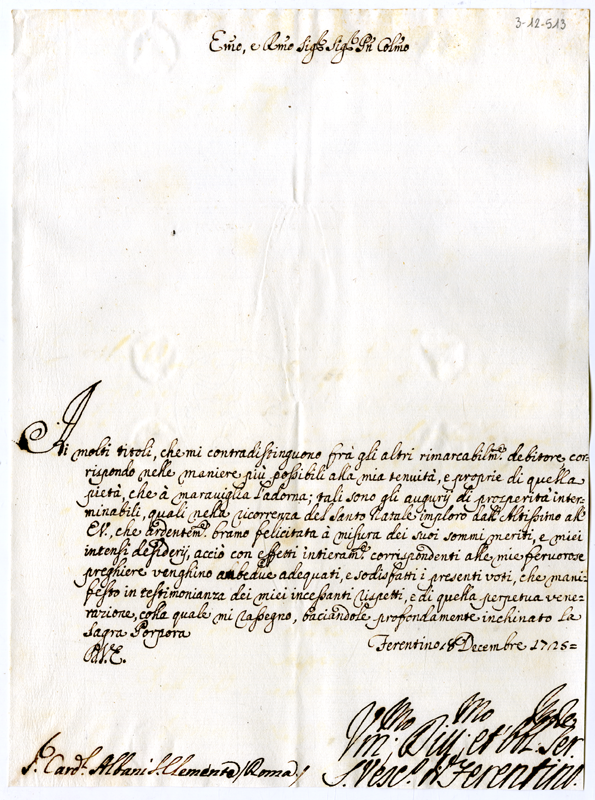 3-12-513
Emo, e Rmo Sigr. Sigr. Pn Colmo
Ai molti titoli, che mi contradistinguono frà gli altri rimarcabilmte. debitore cor-
rispondo nelle maniere più possibili alla mia tenuità, e proprie di quella
pietà, che à maraviglia l'adorna; tali sono gli augurij di prosperità inter-
minabili, quali nella ricorrenza del Santo Natale imploro dall'Altissimo all'
EV., che ardentemte. bramo felicitata à misura dei suoi sommi meriti, e miei
intensi desiderij, acciò con effetti intieramte. corrispondenti alle mie fervorose
preghiere venghino ambedue adequati, e sodisfatti i presenti voti, che mani-
festo in testimonianza dei miei incessanti rispetti, e di quella perpetua vene-
razione, colla quale mi rassegno, baciandole profondamente inchinato la
Sagra Porpora
Ferentino 18 Decembre 1725=
D.V.E.
Vmo Dmo
et obl. Ser
Vesc.o di Ferentino
Sr. Cardl. Albani S. Clemente (Roma)